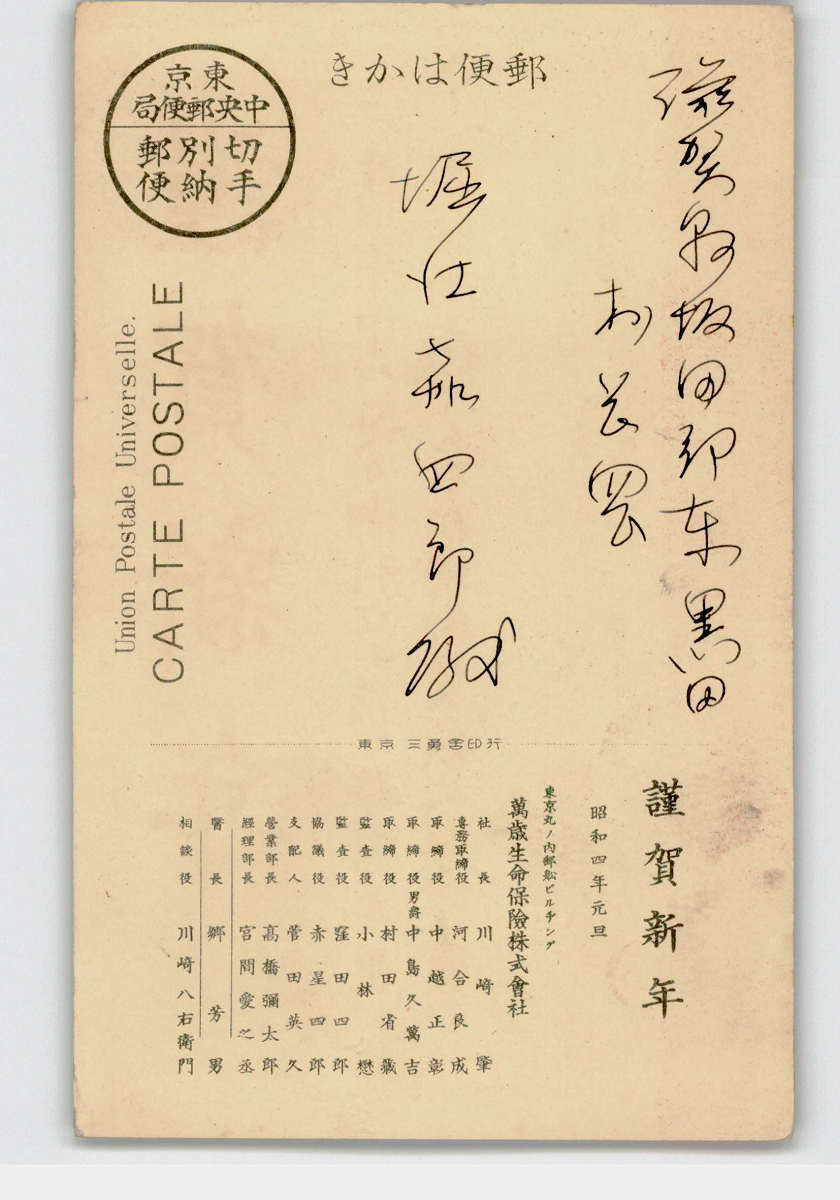 郵便はかき
東京
中央郵便局
切手
別納
郵便
Union Postale Universelle.
CARTE POSTALE
滋賀県坂田郡東黒田
村志賀谷
堀 嘉四郎殿
東京 三勇舎印行
謹賀新年
昭和四年元旦
東京丸ノ内郵船ビルヂング
萬歳生命保險株式會社
社長 川崎肇
専務取締役 河合良成
取締役 中越正彰
取締役 男爵 中島久萬吉
取締役 村田省蔵
監査役 小林懋
監査役 窪田四郎
協議役 赤星四郎
支配人 菅田英久
營業部長 高橋彌太郎
經理部長 宮間愛之丞
醫長 郷芳男
相談役 川崎八右衛門